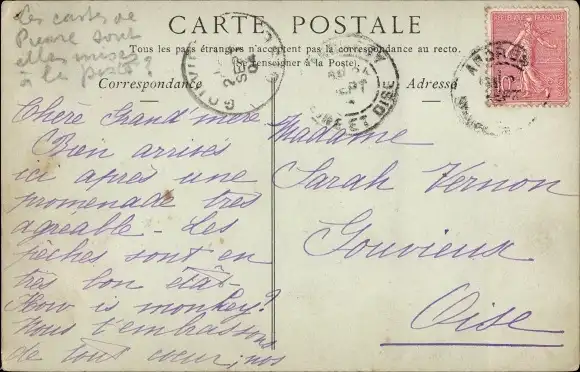 Les cartes de
Pierre sont
elles mises
à la poste ?
CARTE POSTALE
Tous les pays étrangers n'acceptent pas la correspondance au recto.
(Se renseigner à la Poste).
Correspondance
Adresse
RÉPUBLIQUE FRANÇAISE
GOUVIEUX
OISE
Chère Grand'mère
Bien arrivés
ici après une
promenade très
agreable - Les
pêches sont en
très bon état -
How is monkey?
Nous t'embrassons
de tout coeur, nos
Madame
Sarah Vernon
Gouvieux
Oise